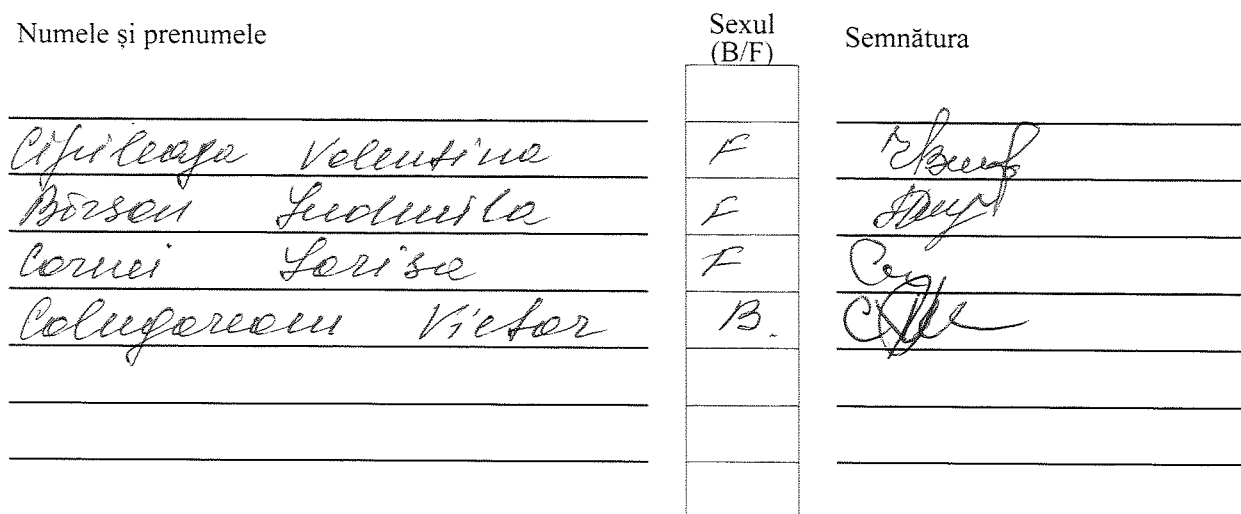 Numele și prenumele Sexul (B/F) Semnătura
Valentina F
Bîrsan Ludmila F
Cornei Larisa F
Calugareanu Victor B.